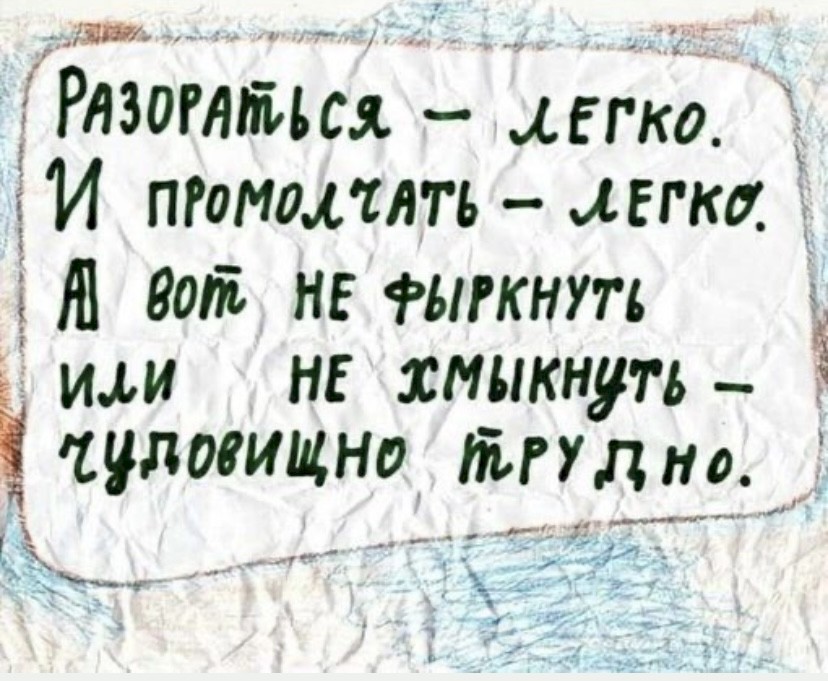 Разораться – легко.
И промолчать – легко.
А вот не фыркнуть
или не хмыкнуть –
чудовищно трудно.